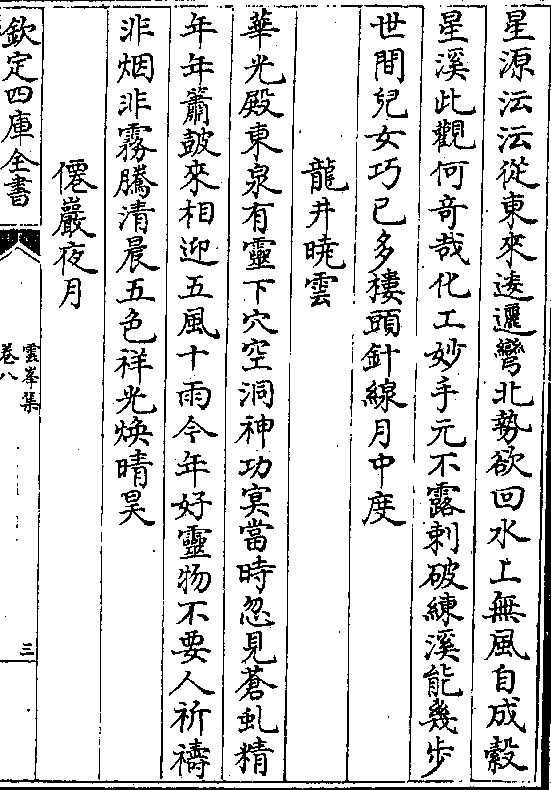 星源沄沄從東來逶邐彎北勢欲回水上無風自成縠
星溪此觀何竒哉化工妙手元不露刺破練溪能幾步
世間兒女巧已多樓頭針線月中度
龍井曉雲
華光殿東泉有靈下穴空洞神功㝠當時忽見蒼虬精
年年簫鼓來相迎五風十雨今年好靈物不要人祈禱
非烟非霧騰清晨五色祥光煥晴昊
僊巖夜月
欽定四庫全書
雲峯集
卷八
三